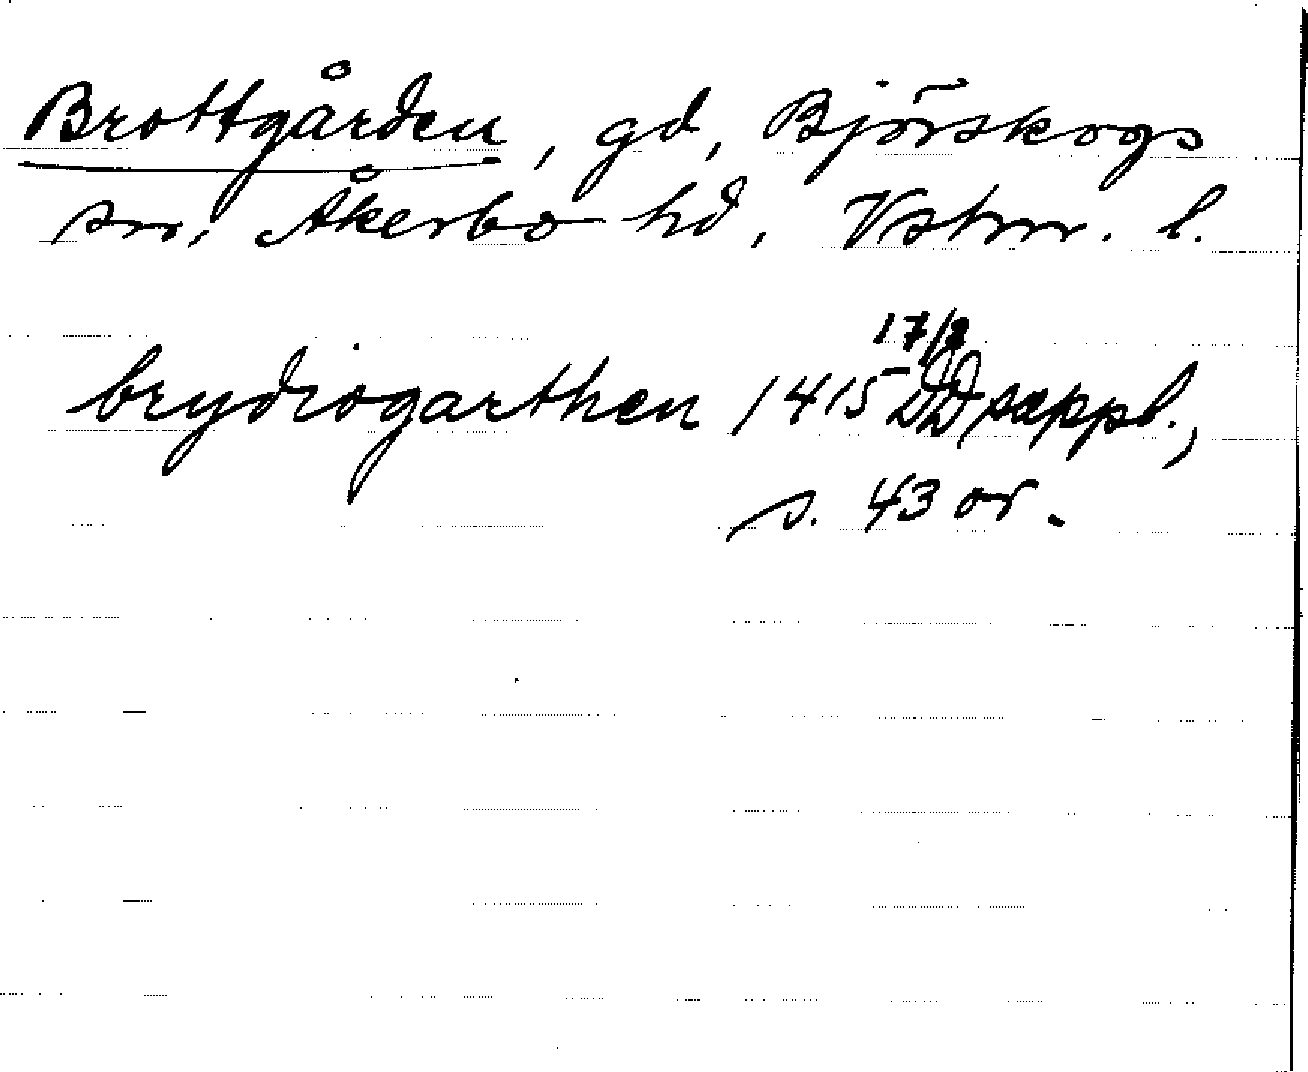 Brottgården, gd, Björskogs
sn, Åkerbo hd, Vstm. l.
brydiogarthen 1415 17/2 DD suppl.,
s. 43 or.